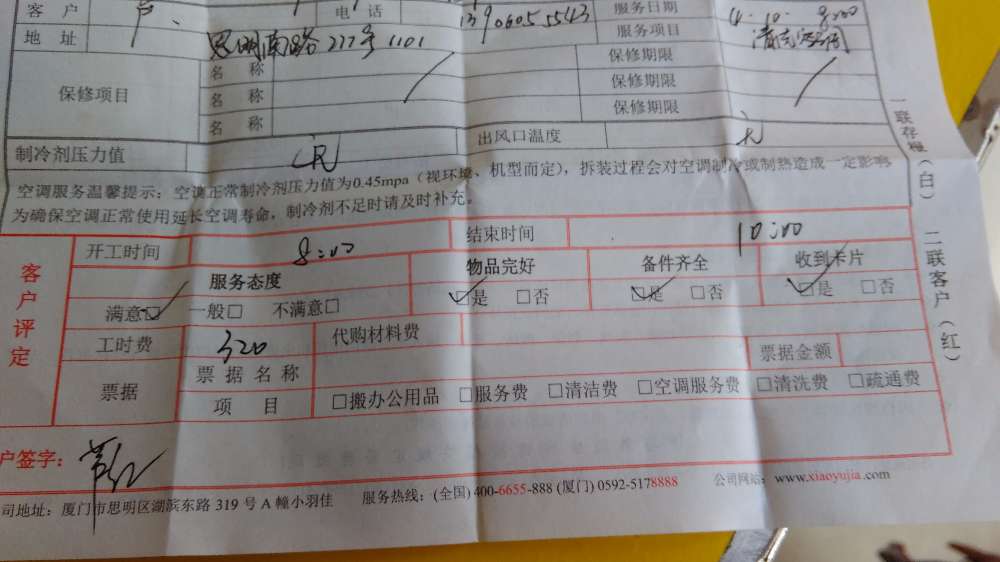 客 户 电 话 服务日期 4.10. 8:00
地 址 思明南路277号1101 服务项目
保修项目 名 称 保修期限
名 称 保修期限
名 称 保修期限
制冷剂压力值 出风口温度
空调服务温馨提示：空调正常制冷剂压力值为0.45mpa（视环境、机型而定），拆装过程会对空调制冷或制热造成一定影响
为确保空调正常使用延长空调寿命，制冷剂不足时请及时补充。
客户评定
开工时间 8:00 结束时间 10:00
服务态度 物品完好 备件齐全 收到卡片
满意□ 一般□ 不满意□ □是 □否 □是 □否 □是 □否
工时费 320 代购材料费
票据 票 据 名 称 票据金额
项 目 □搬办公用品 □服务费 □清洁费 □空调服务费 □清洗费 □疏通费
户签字：
司地址：厦门市思明区湖滨东路 319 号 A 幢小羽佳 服务热线：(全国) 400-6655-888 (厦门) 0592-5178888 公司网站：www.xiaoyujia.com
一联存根（白）
二联客户（红）